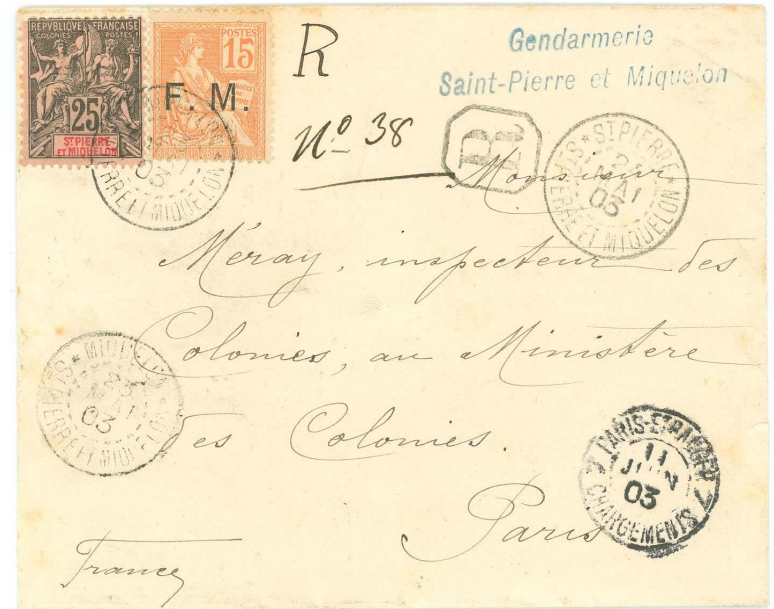 REPUBLIQUE FRANÇAISE
COLONIES POSTES
25
ST PIERRE
ET MIQUELON
POSTES
15
F. M.
R
No 38
Gendarmerie
Saint-Pierre et Miquelon
R
ST PIERRE
MAI
03
ST PIERRE ET MIQUELON
03
PIERRE ET MIQUELON
Monsieur
Méray, inspecteur des
Colonies, au Ministère
des Colonies.
Paris
France
23
MAI
03
ST PIERRE ET MIQUELON
PARIS-ETRANGER
11
JUIN
03
CHARGEMENTS